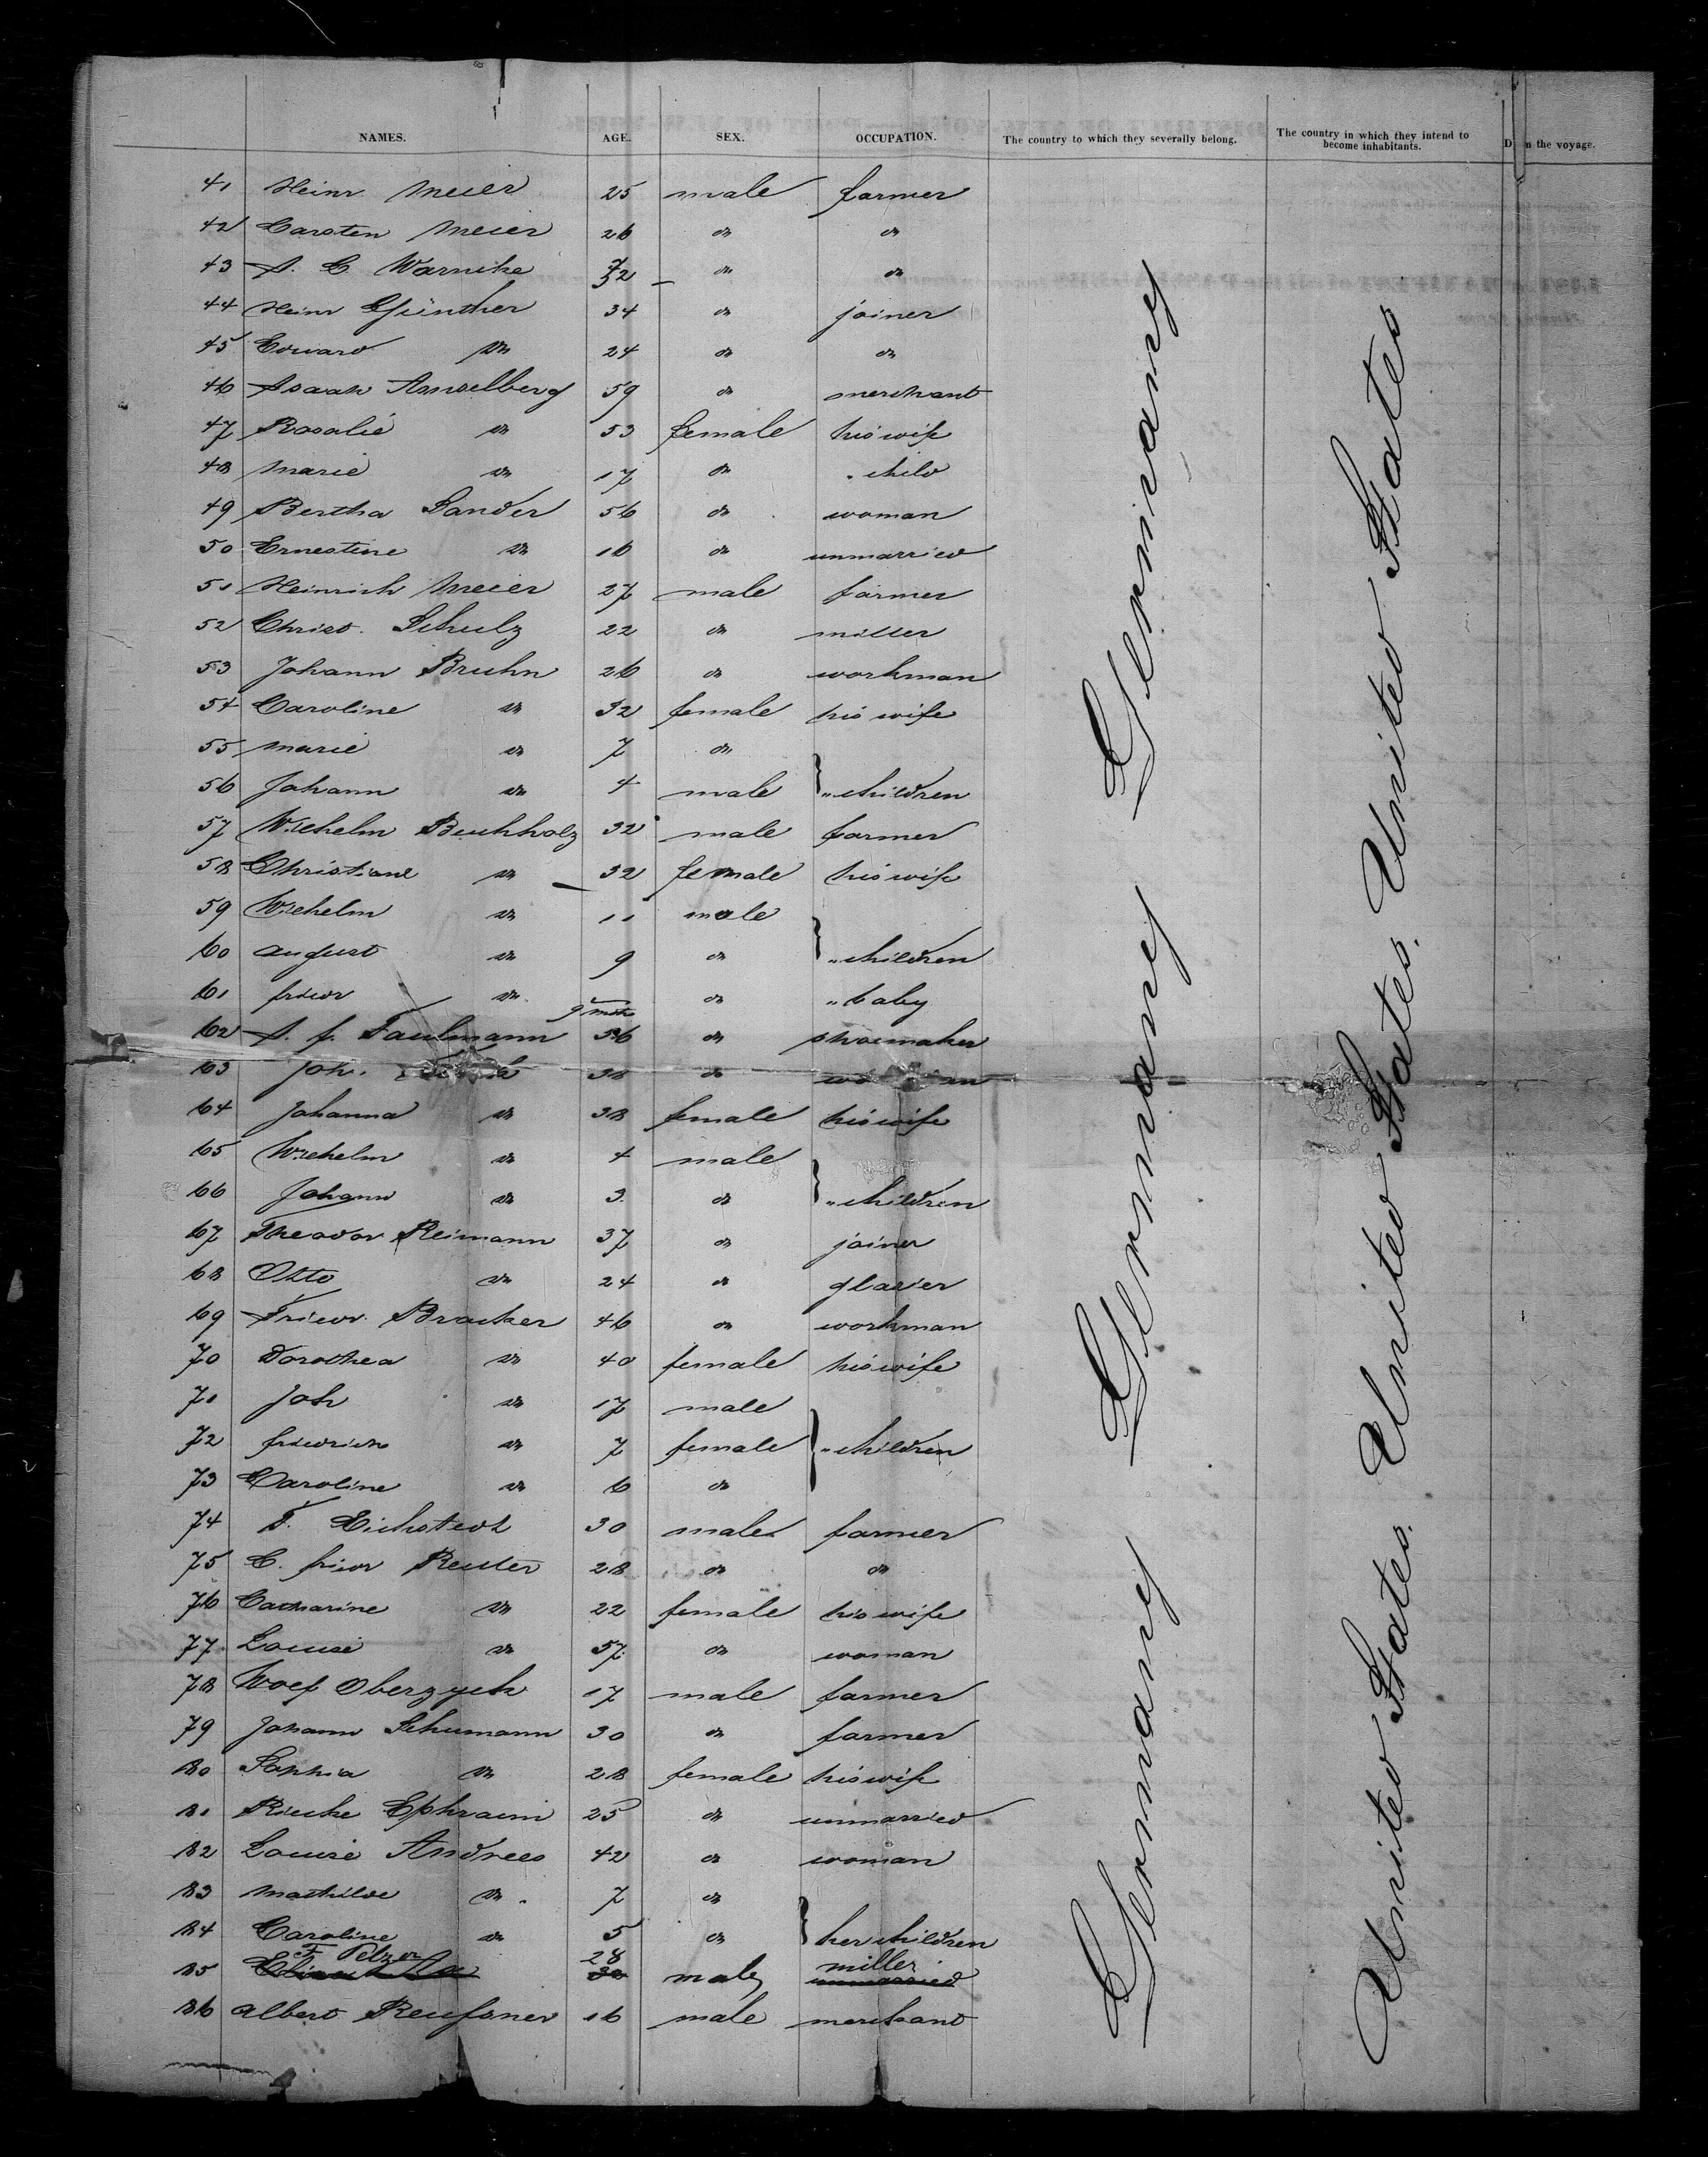 NAMES. AGE. SEX. OCCUPATION. The country to which they severally belong. The country in which they intend to become inhabitants. D n the voyage.
41 Heinr. Meier 25 male farmer
42 Carsten Meier 26 do do
43 A. C Warnike do do
44 Heinr Günther 34 do joiner
45 Edward do 24 do do
46 Isaak Amselberg 59 do merchant
47 Rosalie do 53 female his wife
48 Marie do 17 do " child
49 Bertha Sander 56 do woman
50 Ernestine do 16 do unmarried
51 Heinrich Meier 27 male farmer
52 Christ. Schulz 22 do miller
53 Johann Bruhn 26 do workman
54 Caroline do 32 female his wife
55 Marie do 7 do
56 Johann do 4 male } " children
57 Wilhelm Buchholz 32 male farmer
58 Christiane do 32 female his wife
59 Wilhelm do 11 male
60 August do 9 do } " children
61 friedr do 9 mth do " baby
62 A. f. Faulmann 36 do shoemaker
63 Joh. 38 do
64 Johanna do 38 female his wife
65 Wilhelm do 4 male
66 Johann do 3 do } " children
67 Theodor Reimann 37 do joiner
68 Otto do 24 do glazier
69 Friedr. Bracker 46 do workman
70 Dorothea do 40 female his wife
71 Joh do 17 male
72 friedrich do 7 female } " children
73 Caroline do 6 do
74 F. Eichstedt 30 male farmer
75 C. friedr Reuter 28 do do
76 Catharine do 22 female his wife
77 Louise do 57 do woman
78 Woef Oberzyck 17 male farmer
79 Johann Schumann 30 do farmer
80 Sophia do 28 female his wife
81 Rieke Ephraim 25 do unmarried
82 Louise Andrees 42 do woman
83 Mathilde do 7 do
84 Caroline do 5 do } her children
85 F Pelzer 28 male miller unmarried
86 Albert Reußner 16 male merchant
Germany Germany Germany
United States. United States. United States